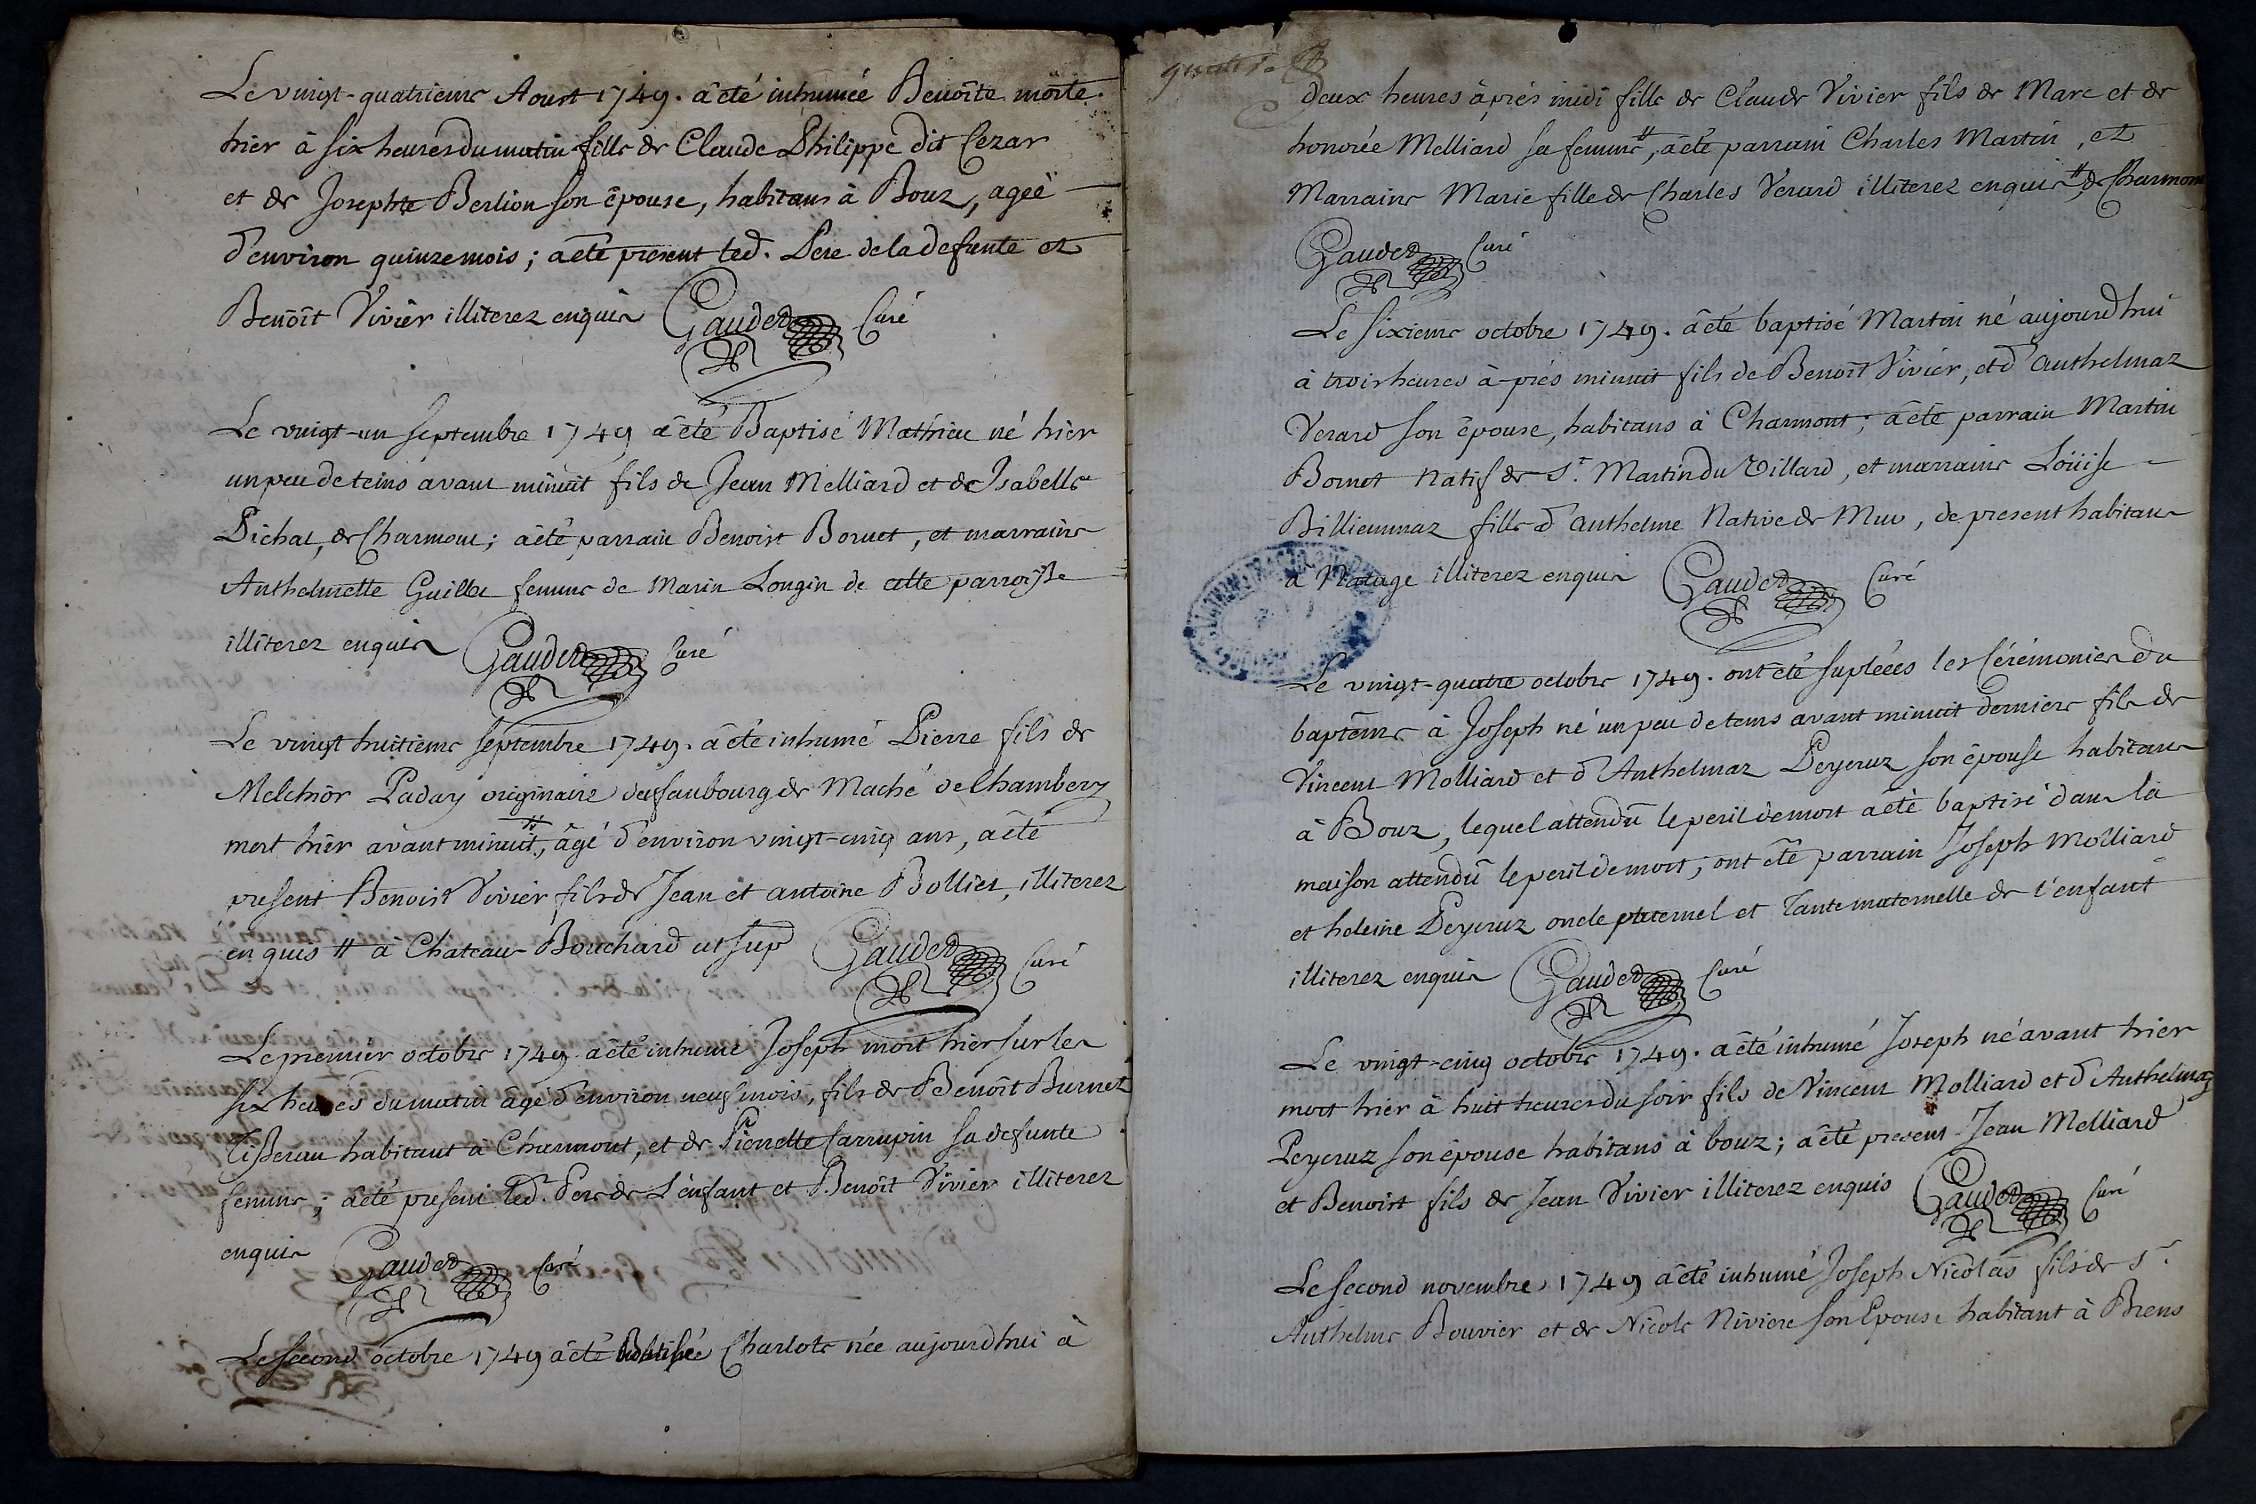 Le vingt-quatrieme Aoust 1749. a été inhumée Benoîte morte
hier à six heures du matin fille de Claude Philippe dit Cezar
et de Josephte Berlion son épouse, habitans à Bouz, agée
d'environ quinze mois; a été present led. Pere de la defunte et
Benoît Vivier illiterez enquis Gauded Curé
Le vingt-un septembre 1749 a été Baptisé Mathieu né hier
un peu de tems avant minuit fils de Jean Melliard et de Isabelle
Pichat, de Charmont; a été parrain Benoist Bornet, et marraine
Anthelmette Guillet femme de Marin Longin de cette parroisse
illiterez enquis Gauded Curé
Le vingt huitieme septembre 1749. a été inhumé Pierre fils de
Melchior Paday originaire du faubourg de Maché de Chambery
mort hier avant minuit #, âgé d'environ vingt-cinq ans, a été
present Benoist Vivier fils de Jean et antoine Bolliet, illiterez
enquis # à Chateau Bouchard ut sup Gauded Curé
Le premier octobre 1749. a été inhumé Joseph mort hier sur les
six heures du matin âgé d'environ neuf mois, fils de Benoît Burnet
Tisseran habitant à Charmont, et de Pierrette Carrupin sa defunte
femme; a été present led. Pere de L'enfant et Benoît Vivier illiterez
enquis Gauded Curé
Le second octobre 1749 a été Baptisée Charlote née aujourdhui à
deux heures àprés midi fille de Claude Vivier fils de Marc et de
honorée Melliard sa femme #, a été parrain Charles Martin, et
Marraine Marie fille de Charles Verard illiterez enquis # de Charmont
Gauded Curé
Le sixieme octobre 1749. a été baptisé Martin né aujourdhui
à trois heures à-prés minuit fils de Benoît Vivier, et d'Anthelmaz
Verard son épouse, habitans à Charmont; a été parrain Martin
Bornet natif de St. Martin du Villard, et marraine Loüise
Billiemmaz fille d'Anthelme Native de Muv, de present habitant
à Natage illiterez enquis Gauded Curé
Le vingt-quatre octobre 1749. ont été supléées les Cérémonies du
baptême à Joseph né un peu de tems avant minuit derniere fils de
Vincent Molliard et d'Anthelmaz Peyeruz son épouse habitans
à Bouz, lequel attendû le peril de mort a été baptisé dans la
maison attendû le peril de mort; ont été parrain Joseph Molliard
et heleine Peyeruz oncle paternel et Tante maternelle de l'enfant
illiterez enquis Gauded Curé
Le vingt-cinq octobre 1749. a été inhumé Joseph né avant hier
mort hier à huit heures du soir fils de Vincent Molliard et d'Anthelmaz
Peyeruz son épouse habitans à bouz; a été present Jean Melliard
et Benoist fils de Jean Vivier illiterez enquis Gauded Curé
Le second novembre 1749 a été inhumé Joseph Nicolas fils de Sr.
Anthelme Bouvier et de Nicole Riviere son Epouse habitant à Brens